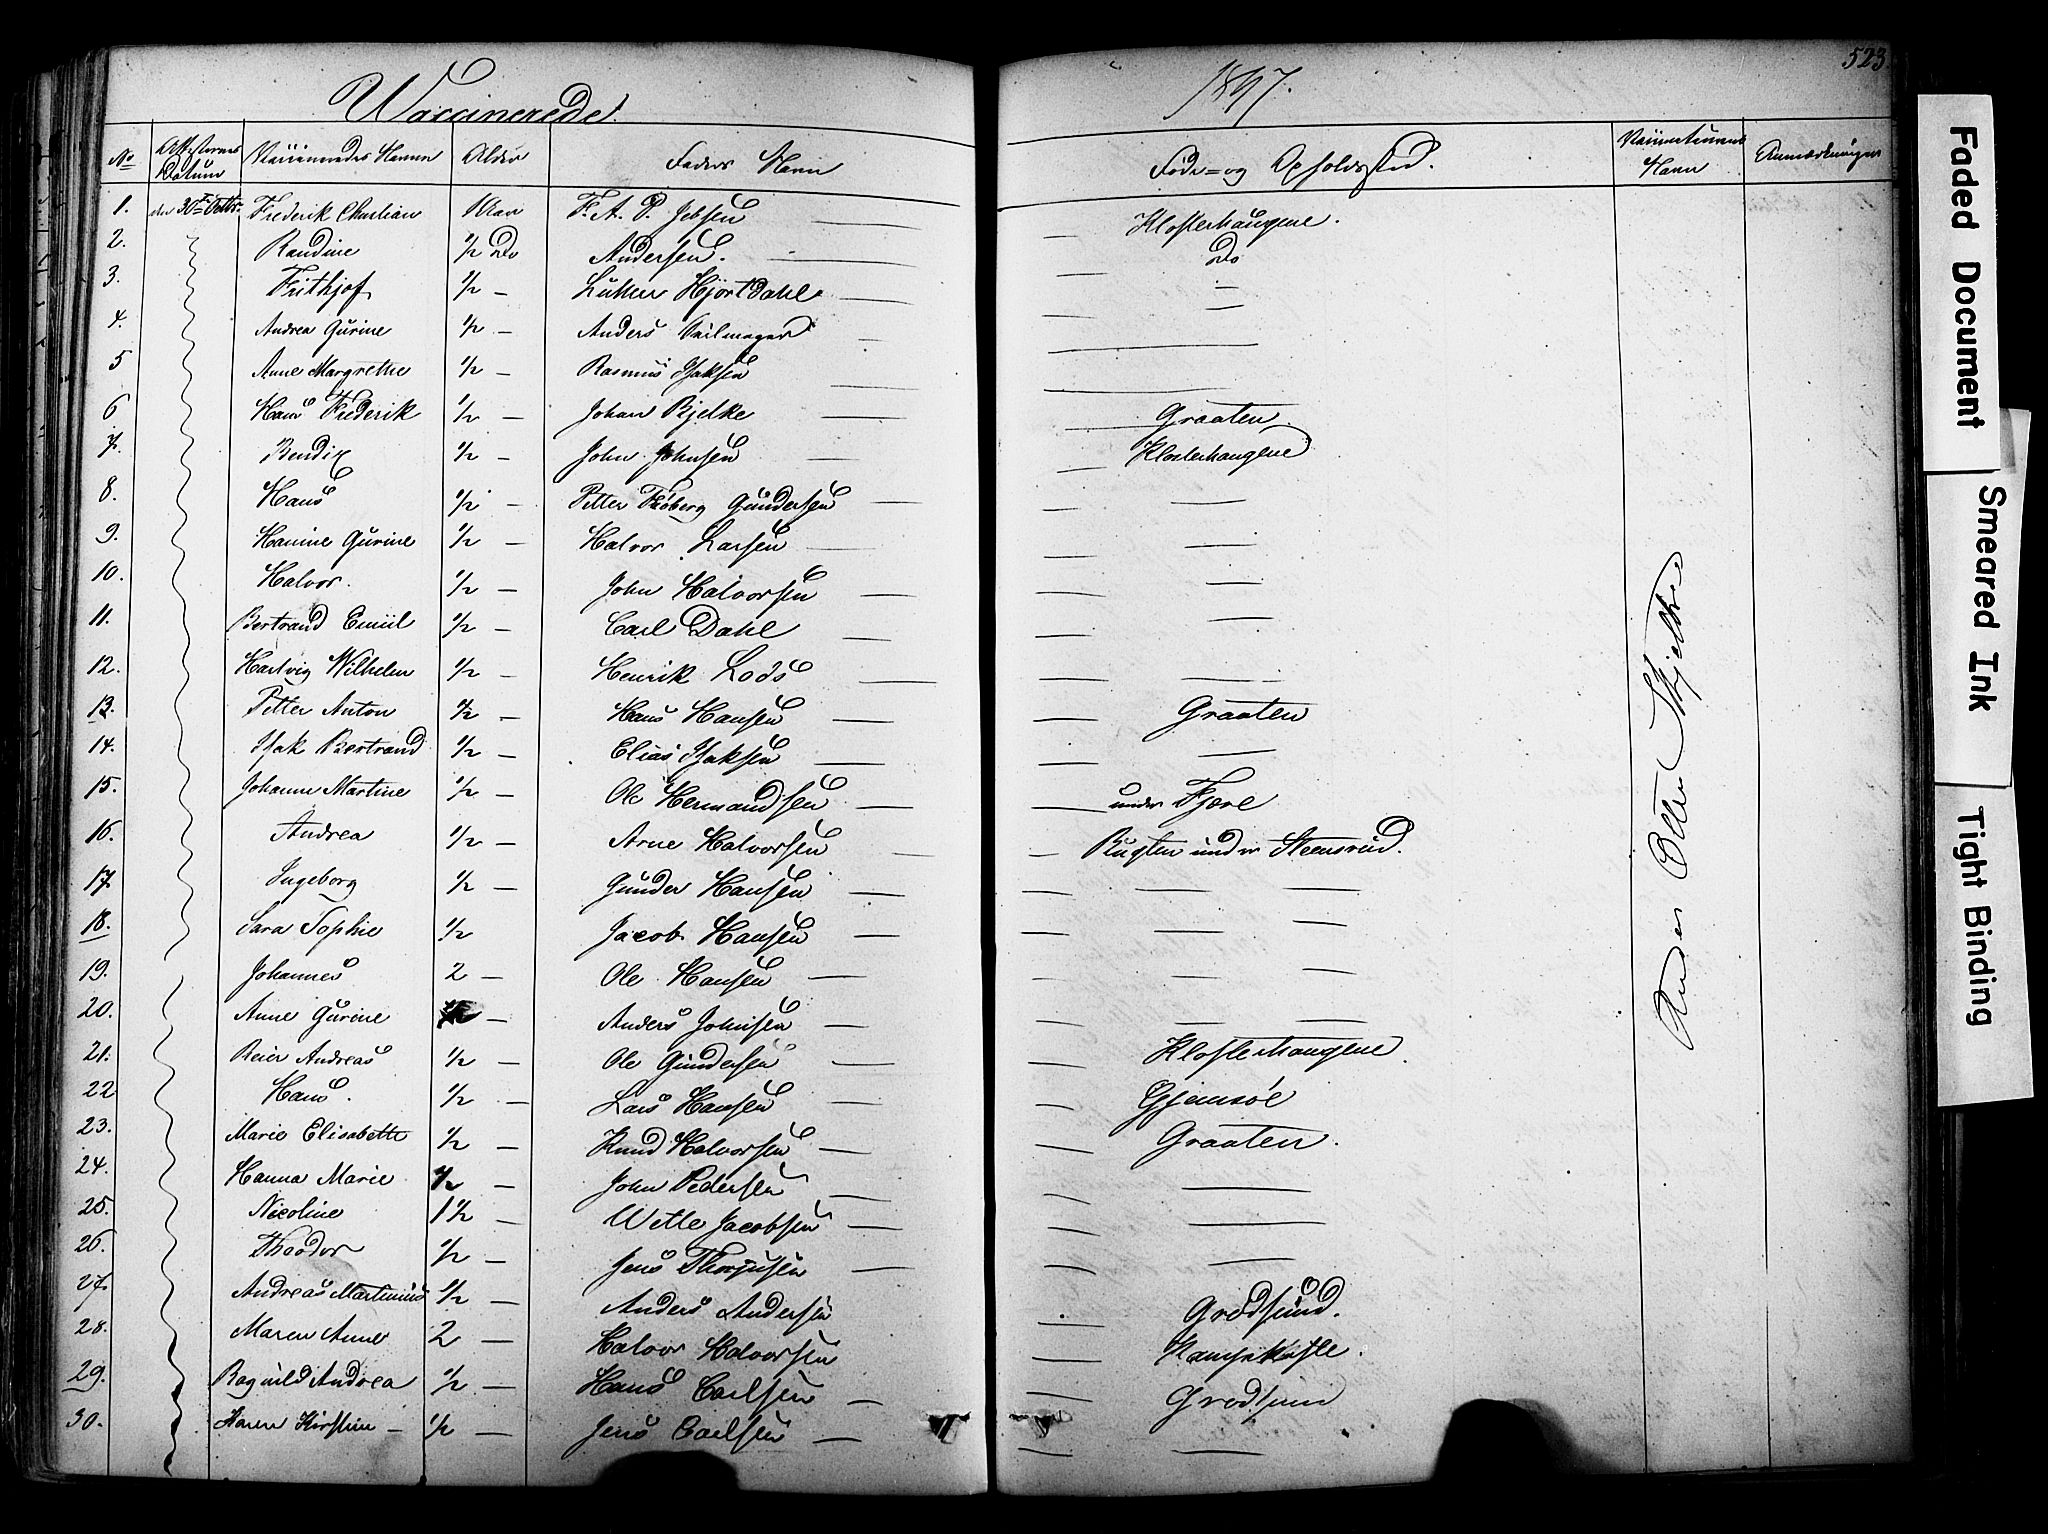 Vaccinerede
1847.
523
No Attesternes Datum Vaccineredes Navne Alder Faders Navn Føde- og Opholdssted. Vaccinateurens Navn Anmærkninger
1. den 30te Octbr. Frederik Christian 1 Aar F. A. P. Jebsen — Klosterhaugene.
2. Randine 1/2 Do Andersen. — — Do
3. Frithjof 1/2 — Lüther Hjort Dahl — — —
4. Andrea Gurine 1/2 — Anders Seilmager — —
5 Anne Margrethe 1/2 — Rasmus Isaksen — —
6 Hans Frederik 1/2 — Johan Bjelke — Graaten
7. Bendix 1/2 — John Johnsen — — Klosterhaugene
8. Hans 1/2 — Petter Frøberg Gundersen — — —
9. Hanine Gurine 1/2 — Halvor Larsen — — —
10. Halvor. 1/2 — John Halvorsen — — —
11. Bertrand Emiil 1/2 — Carl Dahl — — —
12. Hartvig Wilhelm 1/2 — Henrik Lods — — —
13. Petter Anton 1/2 — Hans Hansen — — Graaten
14. Isak Bertrand 1/2 — Elias Isaksen — — —
15. Johanne Martine 1/2 — Ole Hermandsen — — under Fjære
16. Andrea 1/2 — Arne Halvorsen — — Bugten under Steensrud.
17. Ingeborg 1/2 — Gunder Hansen — — — —
18. Sara Sophie 1/2 Jacob Hansen — — — —
19. Johannes 2 — Ole Hansen — — — —
20. Anne Gurine — Anders Johnsen — — — —
21. Reier Andreas 1/2 — Ole Gundersen — — Klosterhaugene.
22 Hans. 1/2 — Lars Hansen — — Gjemsøe
23. Marie Elisabeth 1/2 — Knud Halvorsen — — Graaten.
24. Hanna Marie 1/2 — John Pedersen — — —
25. Nicoline 1 1/2 — Wetle Jacobsen — — —
26. Theodor 1/2 — Jens — — —
27. Andreas Martinius 1/2 — Anders Andersen — Grødsund.
28. Maren Anne 2 — Halvor Halvorsen —
29. Ragnild Andrea 1/2 — Hans Carlsen — — Grødsund
30. Karen Kirstine — 1/2 — Jens Carlsen — — —
Faded Document
Smeared Ink
Tight Binding